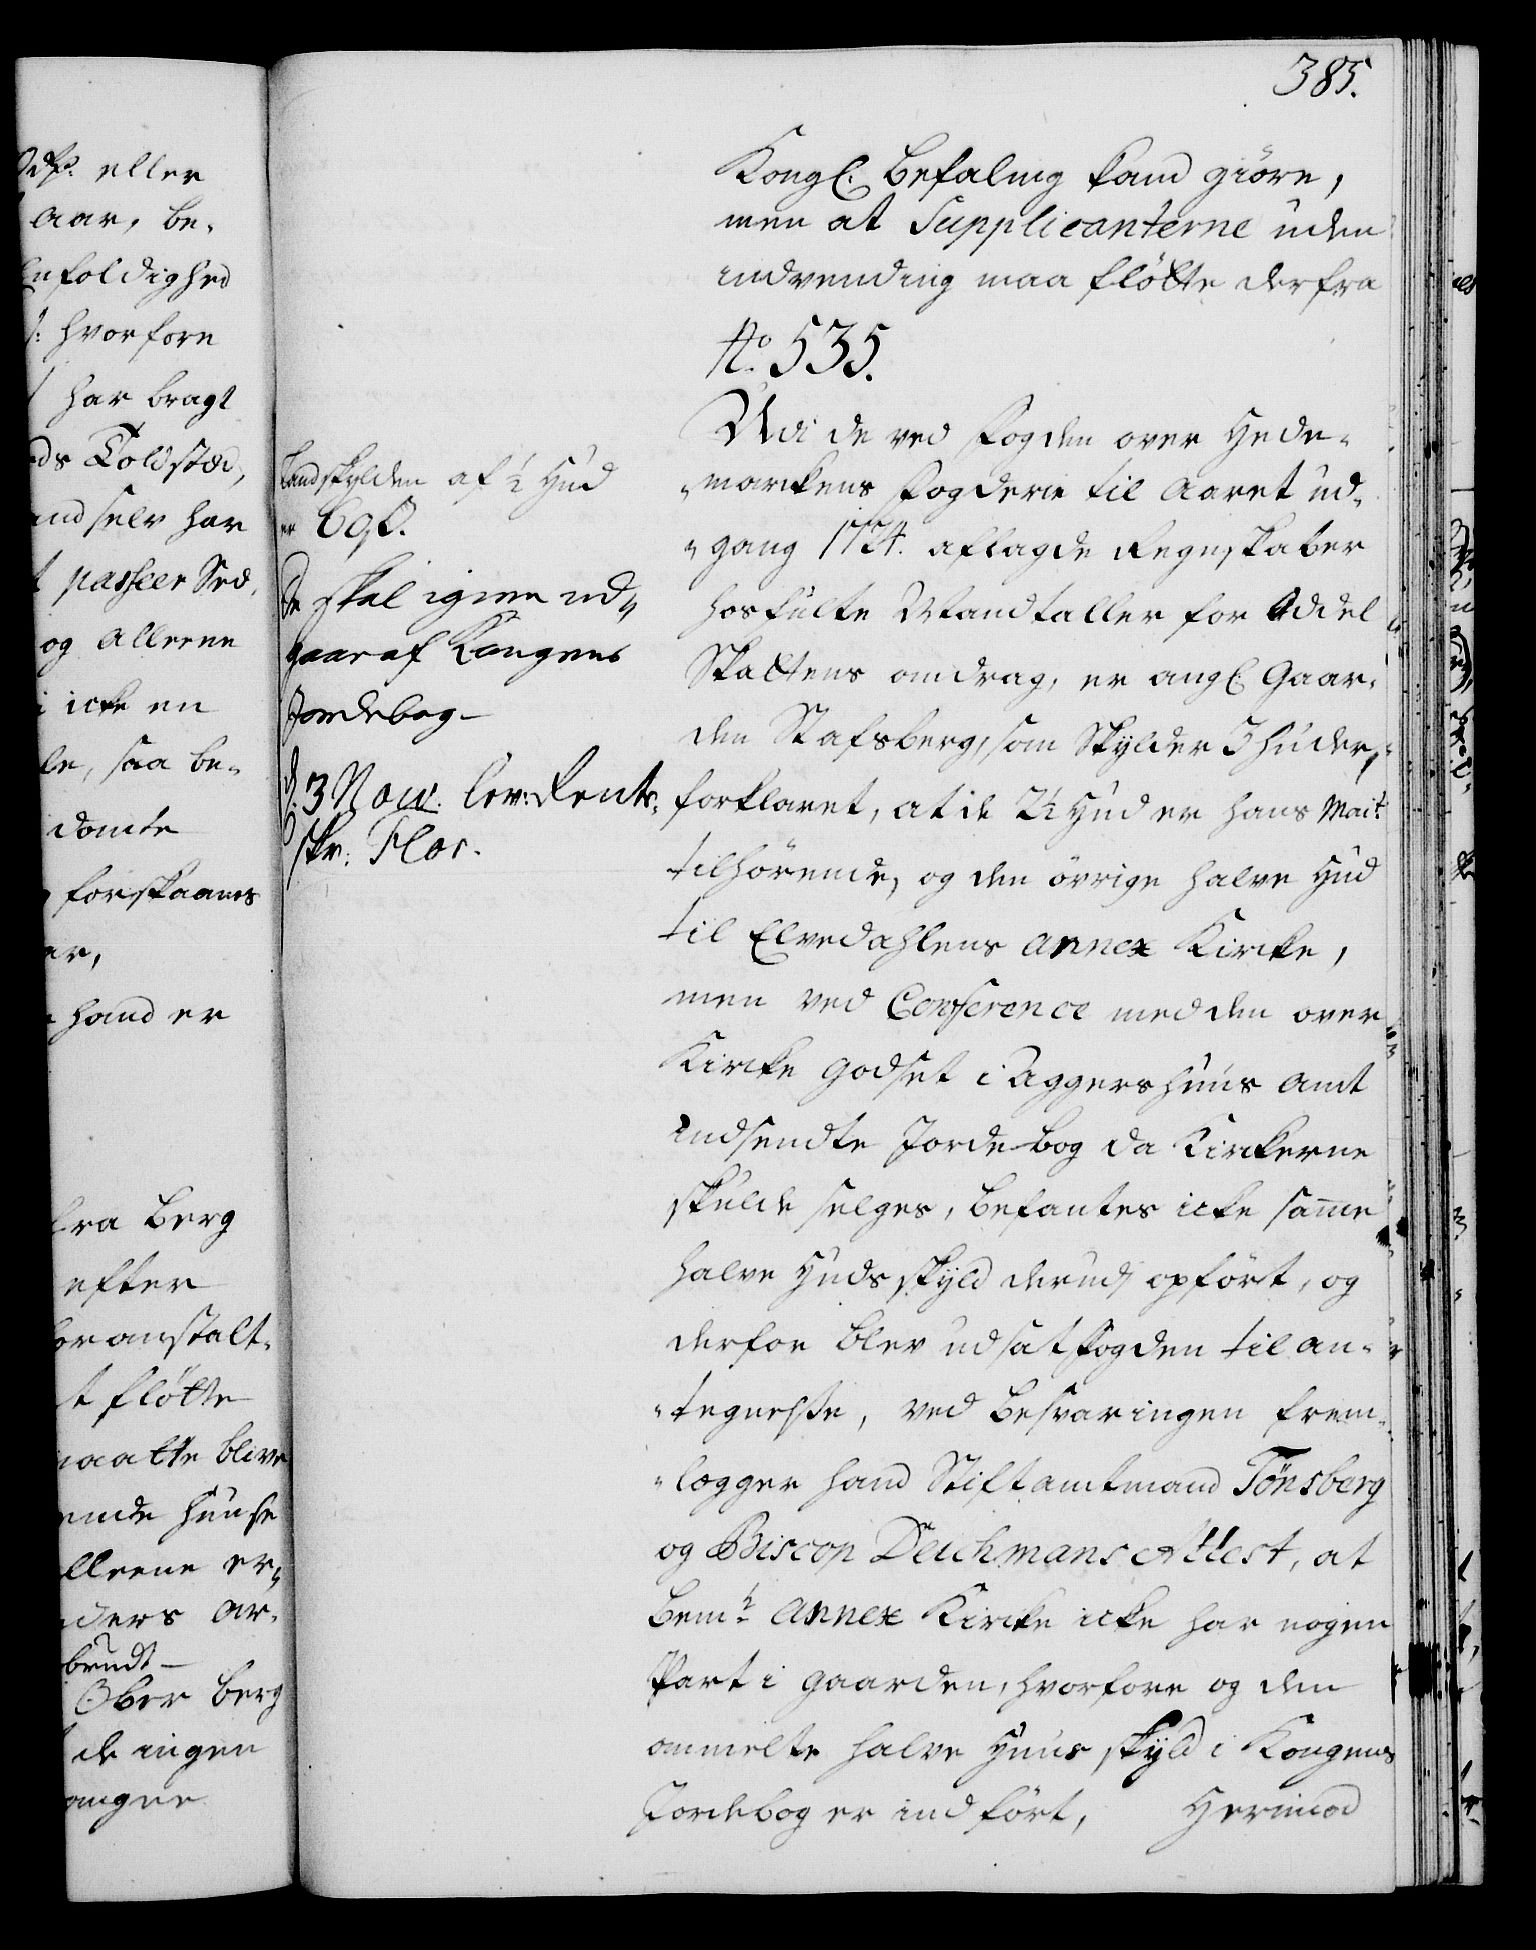 385.
Kongl. befaling kand giöre,
men at Supplicanterne uden
indvending maa flötte derfra
No. 535.
Udi de ved Fogden over Hede-
-markens Fogderie til Aaret ud-
-gang 1724. aflagde Regnskaber
hosfulte Mandtaller for Oddel
Skattens andrag, er angl. Gaar-
den Stafsberg, som Skylder 3 huder,
forklaret, at de 2½ Hud er hans Maits
tilhörende, og den övrige halve Hud
til Elvedahlens annex Kirke,
men ved Conference med den over
Kirke godset i Aggershuus amt
indsendte Jordebog da Kirkerne
skulde selges, befantes icke samme
halve Huds skyld derudj opfört, og
derfor blev udsat Fogden til an-
-tegnelse, ved besvaringen frem-
-legger hand Stiftamtmand Tönsberg
og Biscop Deichmans Attest, at
bemte annex Kirke icke har nogen
Part i gaarden, hvorfore og den
anmelte halve Huus skyld i Kongens
Jordebog er indfört, Herimod
Landskylden af ½ Hud
er 60 s.
De skal igien ud-
gaar af Kongens
Jordebog
d. 3 Nov. lev: Rent-
skr. Flor.
eller
aar, be-
Enfoldighed
hvorfore
har bragt
Toldsted,
selv har
passeer Sed,
og allerne
icke en
saa be-
domte
forskaanes
hand er
fra berg
efter
foranstalt-
flötte
maatte blive
huuse
alleene er-
ders ar-
brudt
Ober berg
de ingen